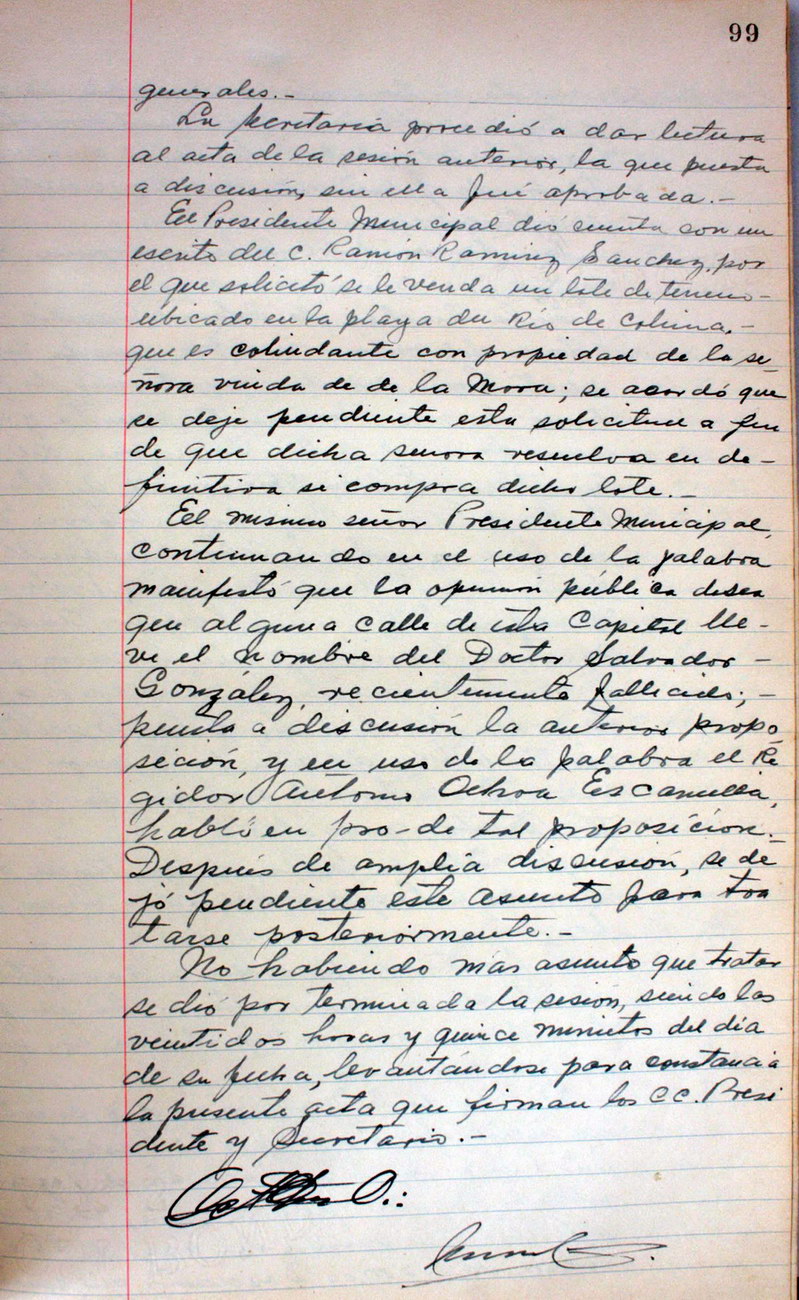 99
generales.-
La Secretaría procedió a dar lectura
al acta de la sesión anterior, la que puesta
a discusión, sin ella fué aprobada.-
El Presidente Municipal dió cuenta con un
escrito del C. Ramón Ramirez Sanchez, por
el que solicitó se le venda un lote de terreno-
ubicado en la playa del Río de Colima,-
que es colindante con propiedad de la se-
ñora viuda de de la Mora; se acordó que
se deje pendiente esta solicitud a fin
de que dicha señora resuelva en de-
finitiva si compra dicho lote.-
El mismo señor Presidente Municipal,
continuando en el uso de la palabra
manifestó que la opinión pública desea
que alguna calle de esta Capital lle-
ve el nombre del Doctor Salvador-
González, recientemente fallecido;-
puesta a discusión la anterior propo-
sición, y en uso de la palabra el Re-
gidor Antonio Ochoa Escamilla,
habló en pro-de tal proposición.-
Después de amplia discusión, se de
jó pendiente este asunto para tra
tarse posteriormente.-
No habiendo más asunto que tratar
se dió por terminada la sesión, siendo las
veintidos horas y quince minutos del día
de su fecha, levantándose para constancia
la presente acta que firman los CC. Presi
dente y Secretario.-